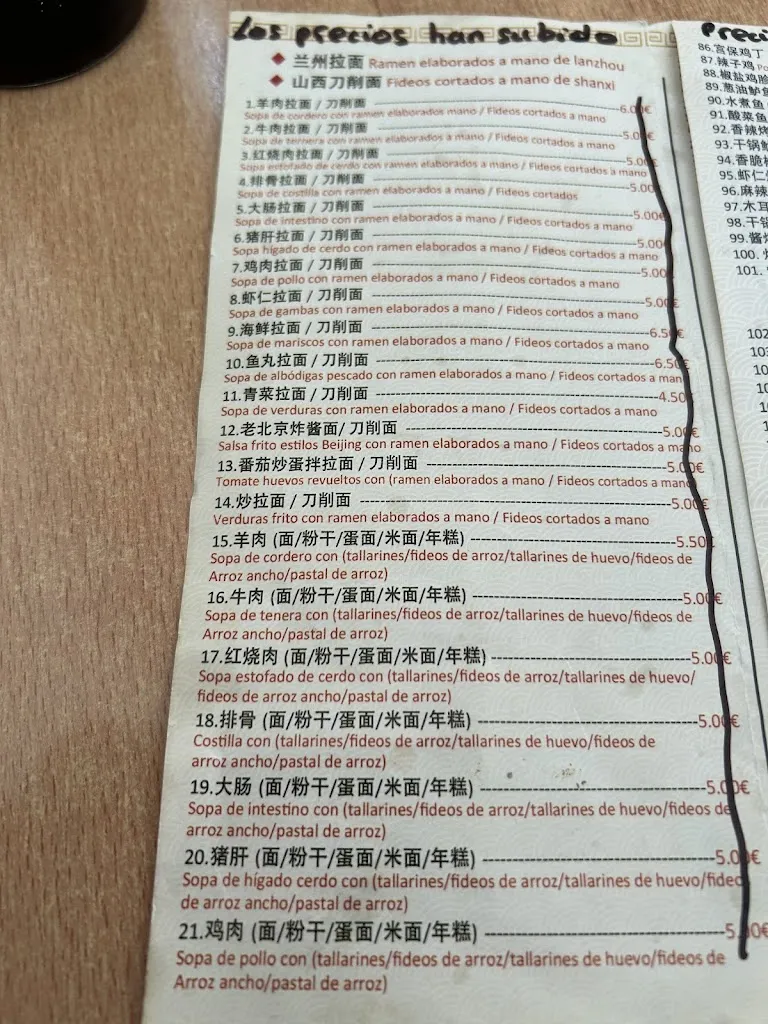 Los precios han subido
兰州拉面 Ramen elaborados a mano de lanzhou
山西刀削面 Fideos cortados a mano de shanxi
1.羊肉拉面 / 刀削面 6.00€
Sopa de cordero con ramen elaborados mano / Fideos cortados a mano
2.牛肉拉面 / 刀削面 5.00€
Sopa de ternera con ramen elaborados a mano / Fideos cortados a mano
3.红烧肉拉面 / 刀削面 5.00€
Sopa estofado de cerdo con ramen elaborados a mano / Fideos cortados a mano
4.排骨拉面 / 刀削面 5.00€
Sopa de costilla con ramen elaborados a mano / Fideos cortados
5.大肠拉面 / 刀削面 5.00€
Sopa de intestino con ramen elaborados a mano / Fideos cortados a mano
6.猪肝拉面 / 刀削面 5.00€
Sopa hígado de cerdo con ramen elaborados a mano / Fideos cortados a mano
7.鸡肉拉面 / 刀削面 5.00€
Sopa de pollo con ramen elaborados a mano / Fideos cortados a mano
8.虾仁拉面 / 刀削面 5.00€
Sopa de gambas con ramen elaborados a mano / Fideos cortados a mano
9.海鲜拉面 / 刀削面 6.50€
Sopa de mariscos con ramen elaborados a mano / Fideos cortados a mano
10.鱼丸拉面 / 刀削面 6.50€
Sopa de albódigas pescado con ramen elaborados a mano / Fideos cortados a man
11.青菜拉面 / 刀削面 4.50
Sopa de verduras con ramen elaborados a mano / Fideos cortados a mano
12.老北京炸酱面/ 刀削面 5.00€
Salsa frito estilos Beijing con ramen elaborados a mano / Fideos cortados a mano
13.番茄炒蛋拌拉面 / 刀削面 5.00€
Tomate huevos revueltos con (ramen elaborados a mano / Fideos cortados a mano
14.炒拉面 / 刀削面 5.00€
Verduras frito con ramen elaborados a mano / Fideos cortados a mano
15.羊肉 (面/粉干/蛋面/米面/年糕) 5.50€
Sopa de cordero con (tallarines/fideos de arroz/tallarines de huevo/fideos de
Arroz ancho/pastal de arroz)
16.牛肉 (面/粉干/蛋面/米面/年糕) 5.00€
Sopa de tenera con (tallarines/fideos de arroz/tallarines de huevo/fideos de
Arroz ancho/pastal de arroz)
17.红烧肉 (面/粉干/蛋面/米面/年糕) 5.00€
Sopa estofado de cerdo con (tallarines/fideos de arroz/tallarines de huevo/
fideos de arroz ancho/pastal de arroz)
18.排骨 (面/粉干/蛋面/米面/年糕) 5.00€
Costilla con (tallarines/fideos de arroz/tallarines de huevo/fideos de
arroz ancho/pastal de arroz)
19.大肠 (面/粉干/蛋面/米面/年糕) 5.00€
Sopa de intestino con (tallarines/fideos de arroz/tallarines de huevo/fideos de
arroz ancho/pastal de arroz)
20.猪肝 (面/粉干/蛋面/米面/年糕) 5.00€
Sopa de hígado cerdo con (tallarines/fideos de arroz/tallarines de huevo/fideo
de arroz ancho/pastal de arroz)
21.鸡肉 (面/粉干/蛋面/米面/年糕) 5.00€
Sopa de pollo con (tallarines/fideos de arroz/tallarines de huevo/fideos de
Arroz ancho/pastal de arroz)
Preci
86.宫保鸡丁
87.辣子鸡 Po
88.椒盐鸡
89.葱油鲈鱼
90.水煮鱼
91.酸菜鱼
92.香辣烤
93.干锅
94.香脆
95.虾仁
96.麻辣
97.木耳
98.干锅
99.酱
100.
101.
102
103